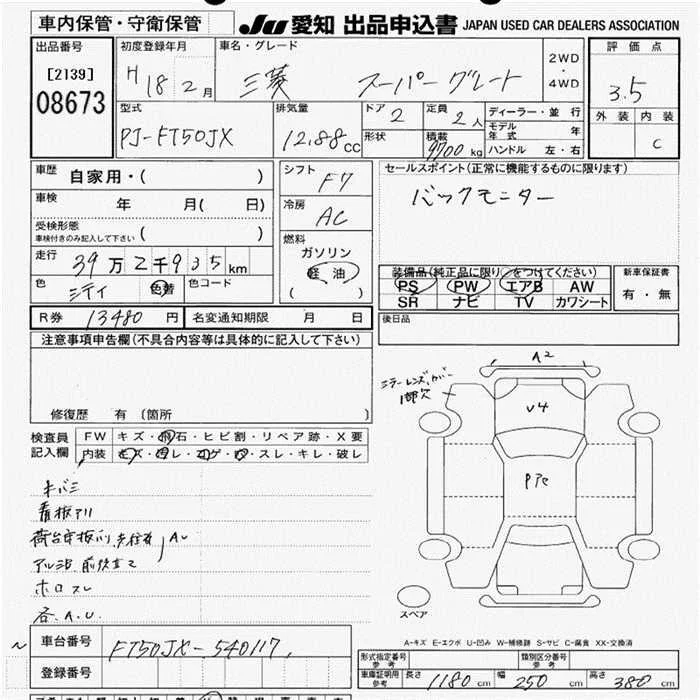 車内保管・守衛保管
JU 愛知 出品申込書 JAPAN USED CAR DEALERS ASSOCIATION
出品番号
[2139]
08673
初度登録年月
H 18 2月
車名・グレード
三菱 スーパーグレート
2WD
・
4WD
評価点
3.5
外装 内装
C
型式
PJ-FT50JX
排気量
12.88cc
ドア
2
定員
2人
形状
積載
9700kg
ディーラー・並行
モデル年式 年
ハンドル 左・右
車歴 自家用・( )
車検 年 月( 日)
受検形態
車検付きのみ記入して下さい ( )
走行 39万2千935km
色 シティ 色替 色コード
シフト
F7
冷房
AC
燃料
ガソリン
軽油
( )
セールスポイント(正常に機能するものに限ります)
バックモニター
装備品(純正品に限り○をつけてください)
PS PW エアB AW
SR ナビ TV カワシート
新車保証書
有・無
R券 13480円 名変通知期限 月 日
後日品
注意事項申告欄(不具合内容等は具体的に記入して下さい)
修復歴 有 (箇所 )
検査員
記入欄
FW キズ・飛石・ヒビ割・リペア跡・X要
内装 キズ・汚レ・コゲ・穴・スレ・キレ・破レ
キバミ
看板アリ
アルミ
ホロスレ
各A.U.
A2
ミラーレンズ、カバー
1部欠
V4
スペア
A-キズ E-エクボ U-凹み W-補修跡 S-サビ C-腐食 XX-交換済
車台番号
FT50JX-540117
登録番号
形式指定番号
参考
類別区分番号
参考
車庫証明用
参考
長さ 1180cm 幅 250cm 高さ 380cm